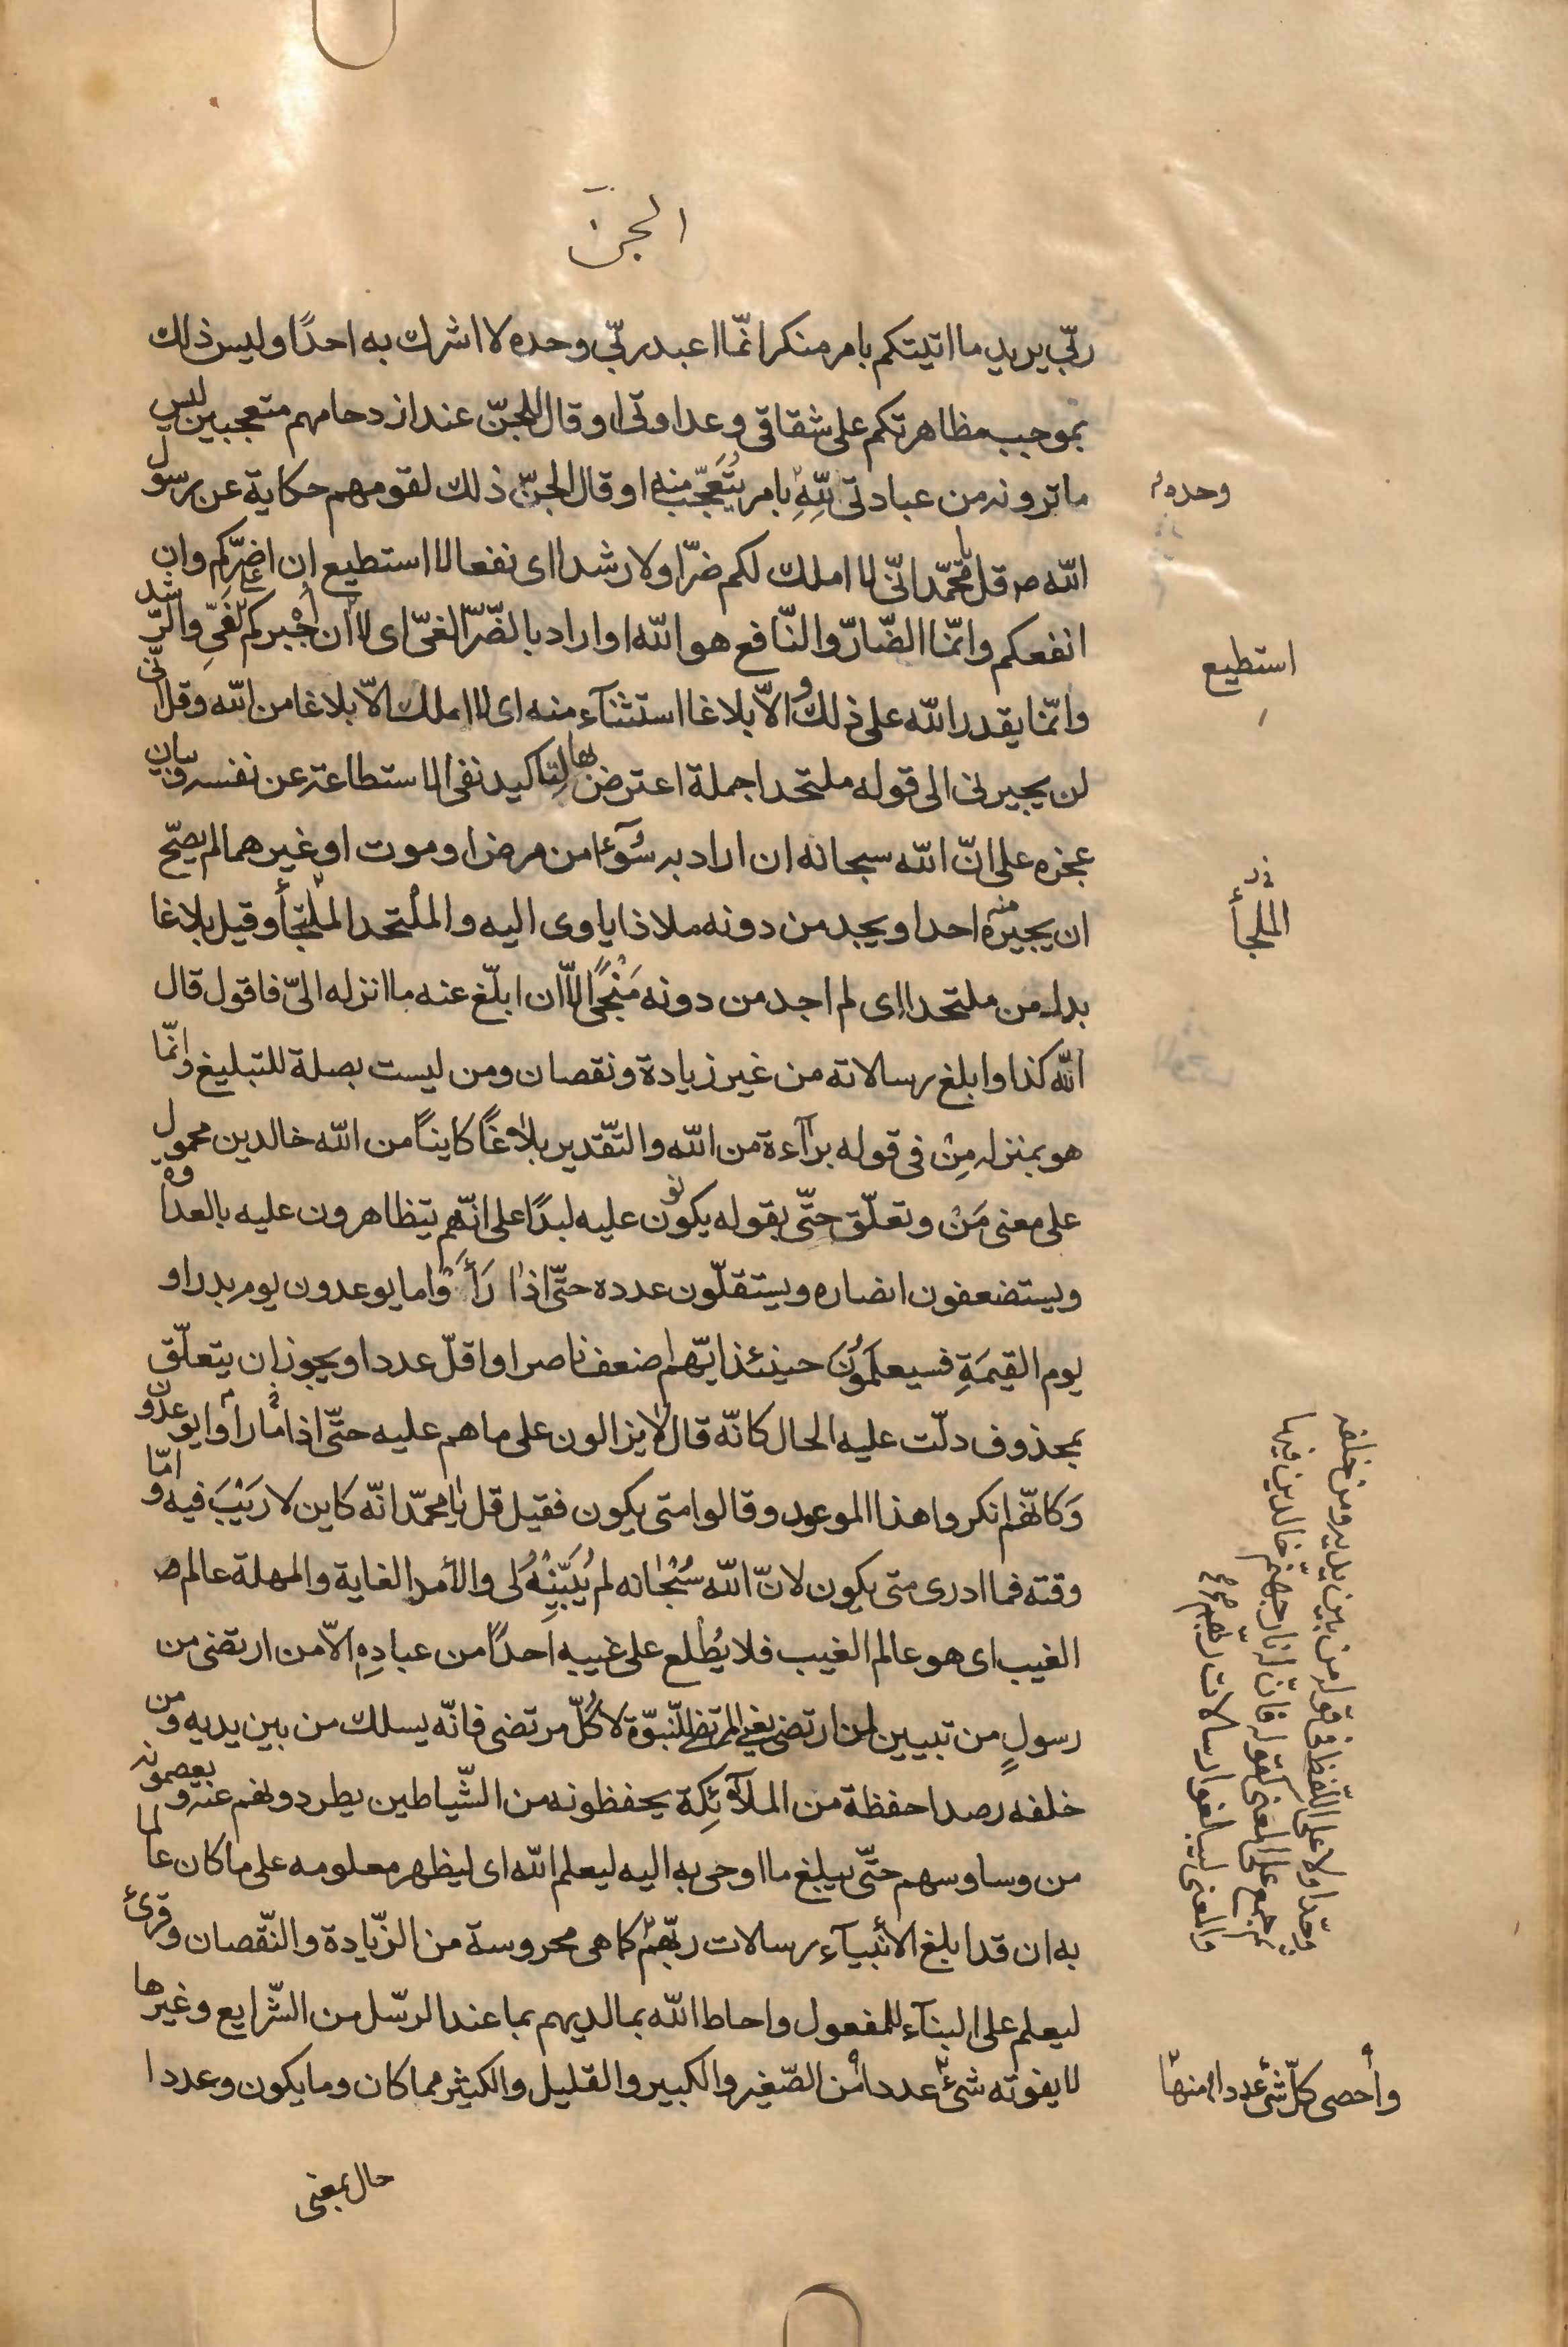 الجنّ
ربّي يريد ما اتيتكم بامر منكر انّما اعبد ربّي وحده لا اشرك به احدًا وليس ذلك
بموجب مظاهرتكم على شقاقي وعداوتي او قال للجنّ عند ازدحامهم متعجبين ليس
ما ترونه من عبادتي للّٰه بامر يُتَعَجّب منه او قال الجنّ ذلك لقومهم حكاية عن رسول
وحده
الله ص قل يا محمّد انّي لا املك لكم ضرّا ولا رشدا اى نفعا لا استطيع ان اضرّكم وان
انفعكم وانّما الضّارّ والنّافع هو اللّه او اراد بالضّرّ الغىّ اى لا ان اجبركم على الغَىِّ والرّشد
استطيع
وانّما يقدر اللّه على ذلك و الاّ بلاغا استثنآء منه اى لا املك الاّ بلاغا من اللّه وقل انّى
لن يجيرنى الى قوله ملتحدا جملة اعترض بها لتاكيد نفى الاستطاعة عن نفسه وبيان
عجزه على انّ اللّه سبحانه ان اراد به سُوٓءًا من مرض او موت او غيرهما لم يصحّ
ان يجيره منه احد او يجد من دونه ملاذا ياوى اليه والملْتحد الملتجأ وقيل بلاغا
الملجأ
بدل من ملتحدا اى لم اجد من دونه مَنْجًى الاّ ان ابلّغ عنه ما انزله الىّ فاقول قال
اللّه كذا وابلغ رسالاته من غير زيادة ونقصان ومن ليست بصلة للتبليغ وانّما
هو بمنزله مِنْ فى قوله برآءة من اللّه والتّقدير بلاغًا كاينًا من اللّه خالدين محمول
على معنى مَنْ وتعلّق حتّى بقوله يكونون عليه لبدًا على انّهم يتظاهرون عليه بالعداوة
ويستضعفون انصاره ويستقلّون عدده حتّى اذا رَأَوْا ما يوعدون يوم بدر او
يوم القيمَةِ فسيعلَمُونَ حينئذ ايّهم اضعف ناصرا واقلّ عددا ويجوز ان يتعلّق
بمحذوف دلّت عليه الحال كانّه قال لا يزالون على ما هم عليه حتّى اذا رأوا ما يوعدون
وَكانّهم انكروا هذا الموعود وقالوا متى يكون فقيل قل يا محمّد انّه كاين لا رَيْبَ فيه وامّا
وقته فما ادرى متى يكون لانّ اللّه سُبْحانه لم يُبَيِّنْهُ لى والأمد الغاية والمهلة عالم
الغيب اى هو عالم الغيب فلا يُطْلع على غيبه احدًا من عبادِهِ الاّ من ارتضى من
رسولٍ من تبيين لمن ارتضى يعنى المرتضى للنّبوّة لا كُلّ مرتضى فانّه يسلك من بين يديه ومن
خلفه رصدا حفظة من الملآئِكة يحفظونه من الشّياطين يطردونهم عنه ويعصمونه
من وساوسهم حتّى يبلغ ما اوحى به اليه ليعلم اللّه اى ليظهر معلومه على ما كان عالما
به ان قد ابلغ الأنبيآء رسالات ربّهم كما هى محروسة من الزّيادة والنّقصان وقرئ
ليعلم على البنآء للمفعول واحاط اللّه بما لديهم بما عند الرسّل من الشّرايع وغيرها
لا يفوته شئ عددا من الصّغير والكبير والقليل والكثير مما كان وما يكون وعددا
وأحصى كلّ شئ عددا منها
وحّد اولا على اللّفظ فى قوله من بين يديه ومن خلفه
ثم جمع على المعنى كقوله فانّ له نار جهنّم خالدين فيها
والمعنى ليبلغوا رسالات ربّهم
حال بمعنى